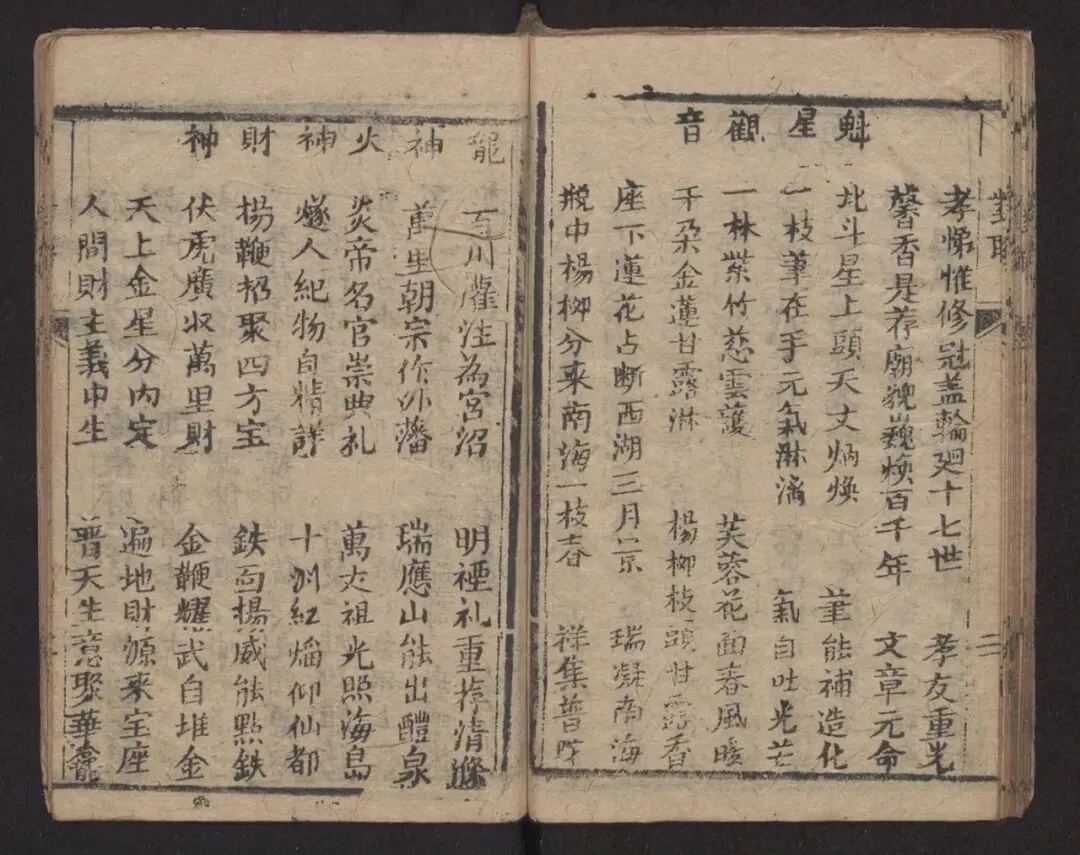 對聯
二
孝悌惟修冠盖輪廻十七世 孝友重光
馨香是荐廟貌巍煥百千年 文章元命
魁星
北斗星上頭天文炳煥 筆能補造化
一枝筆在手元氣淋漓 氣自吐光芒
觀音
一林紫竹慈雲護 芙蓉花面春風暖
千朶金蓮甘露淋 楊柳枝頭甘露香
座下蓮花占断西湖三月景 瑞凝南海
瓶中楊柳分來南海一枝春 祥集普陀
龍神
百川灌注為宮沼 明禋礼重荐清滌
萬里朝宗作外藩 瑞應山能出醴泉
火神
炎帝名官崇典礼 萬丈祖光照海島
燧人紀物自精詳 十洲紅熖仰仙都
財神
楊鞭招聚四方宝 鉄面揚威能點鉄
伏虎廣收萬里財 金鞭耀武自堆金
天上金星分内定 遍地財源來宝座
人間財主義中生 普天生意聚華龕